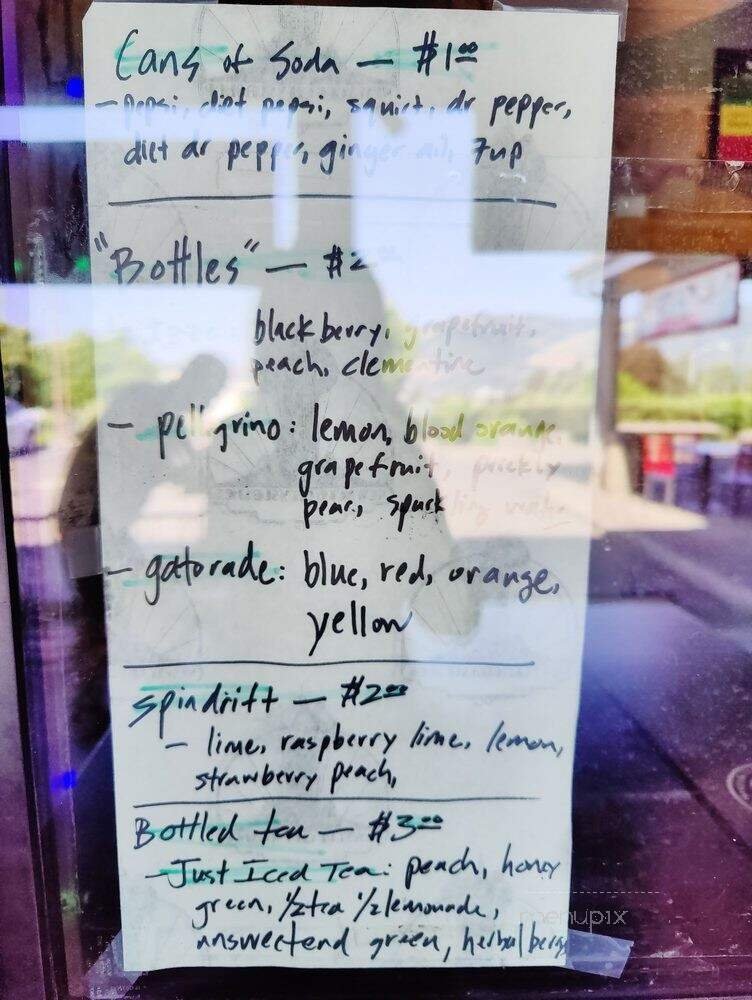 Cans of Soda — $1.00
- pepsi, diet pepsi, squirt, dr pepper,
diet dr pepper, ginger ail, 7up
"Bottles" — $2
blackberry, grapefruit,
peach, clementine
- pellgrino: lemon, blood orange,
grapefruit, prickly
pear, sparkling water
- gatorade: blue, red, orange,
yellow
Spindrift — $2.00
- lime, raspberry lime, lemon,
strawberry peach,
Bottled tea — $3.00
- Just Iced Tea: peach, honey
green, 1/2 tea 1/2 lemonade,
unsweetend green, herbal berry
menupix